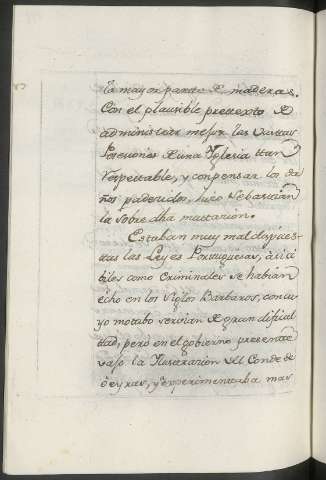 la mayor parte de maderas.
Con el plausible pretexto de
administrar mejor las vastas
Posesiones de una Yglesia ttan
respettable, y conpensar los da
ños padecidos, hizo Sebastian
la sobre dha muttacion.
Estaban muy mal dispues-
ttas las Leyes Portuguesas, asi ci
biles como Criminales se habian
echo en los Siglos Barbaros, con cu
yo motibo serbian de gran dificul
ttad, pero en el gobierno presente
vajo la del Conde de
Oeyras, y experimentaba mas